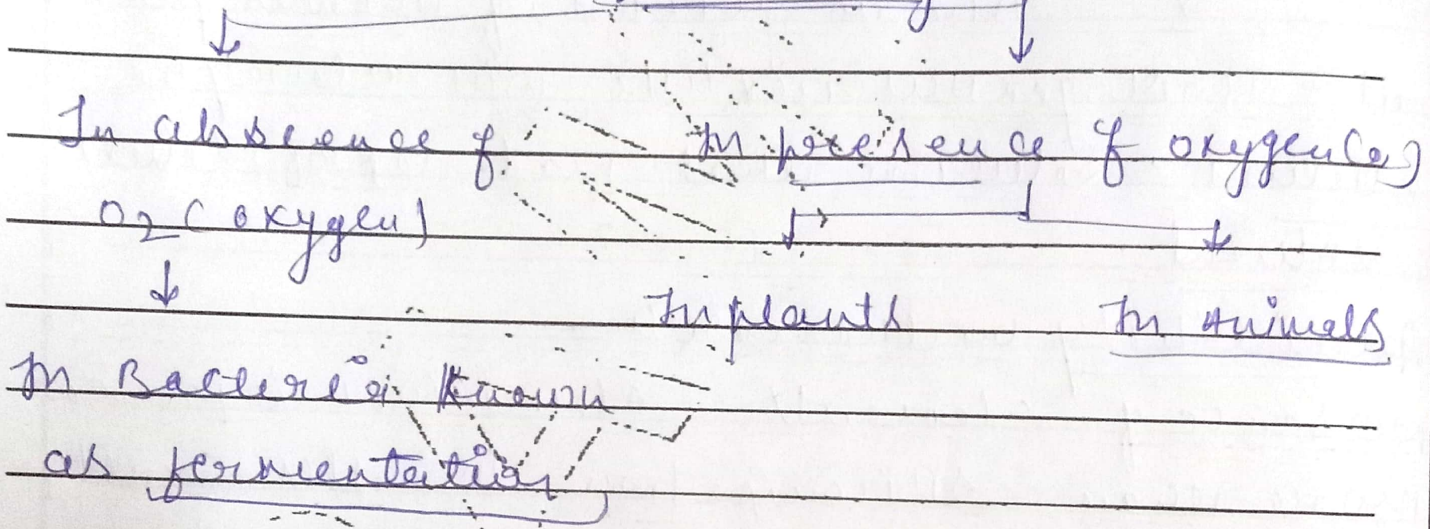 In absence of In presence of oxygen (O2)
O2 (oxygen)
In plants In Animals
In Bacteria known
as fermentation